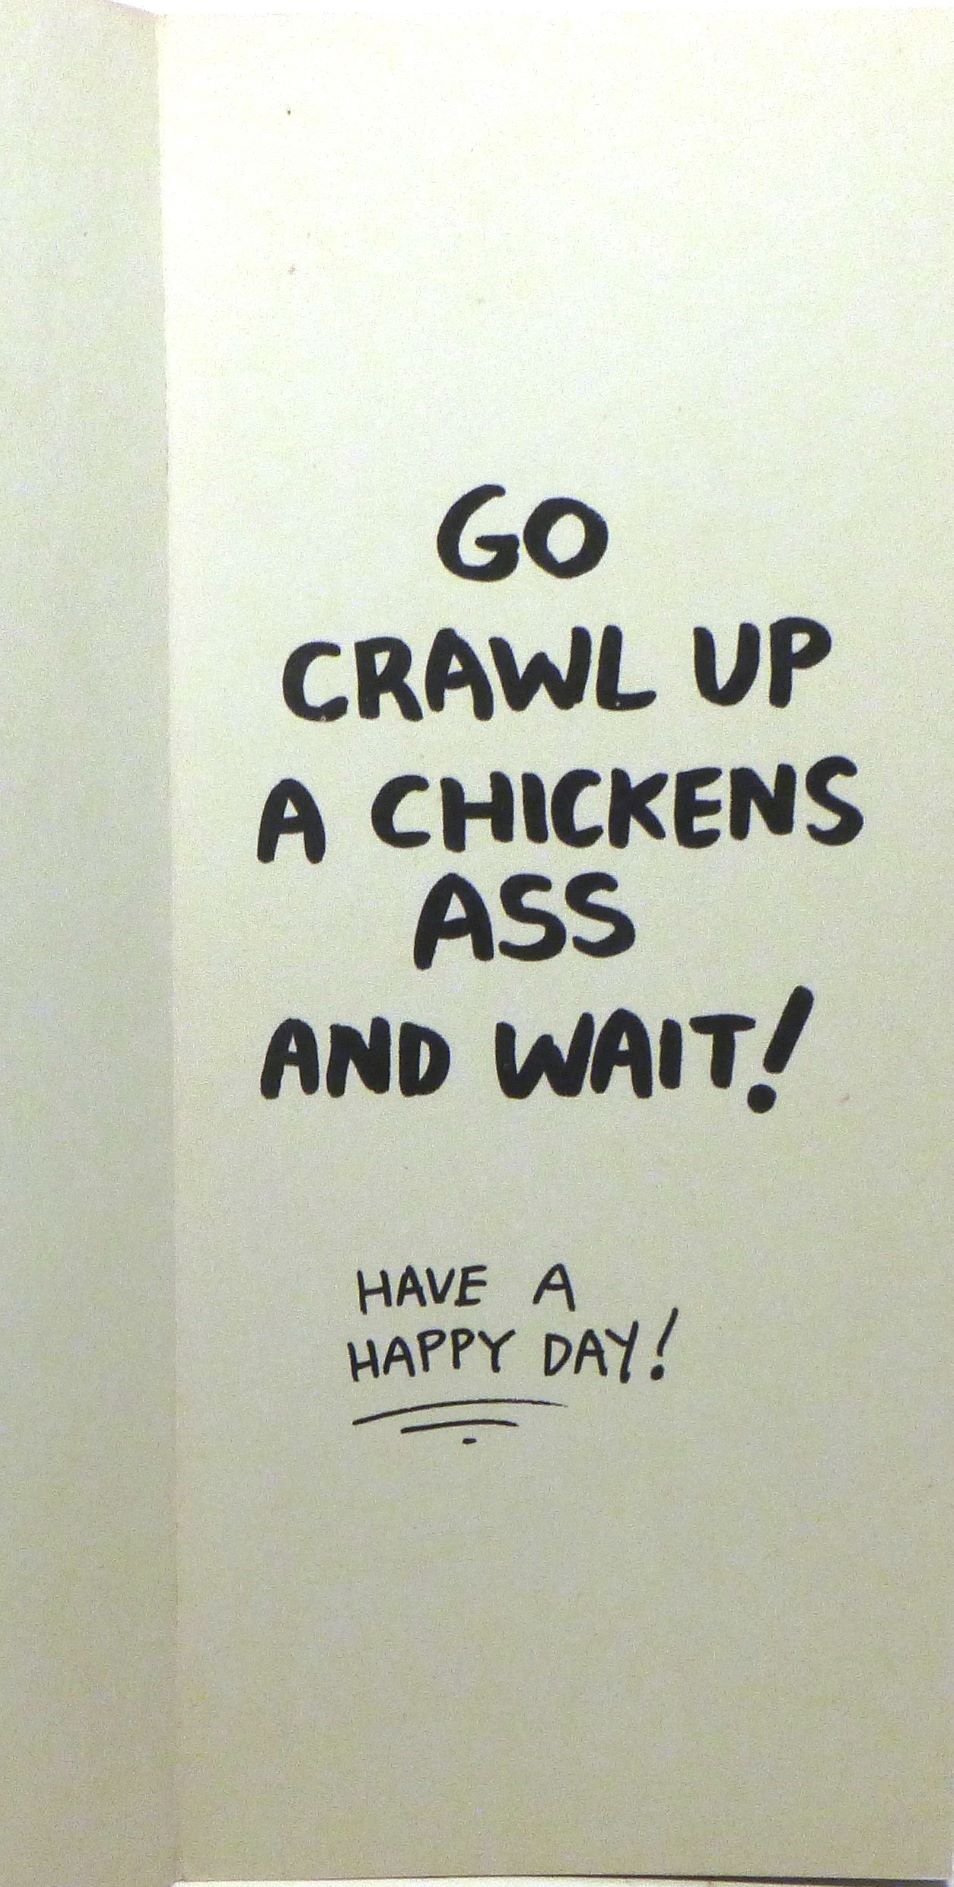 GO
CRAWL UP
A CHICKENS
ASS
AND WAIT!
HAVE A
HAPPY DAY!